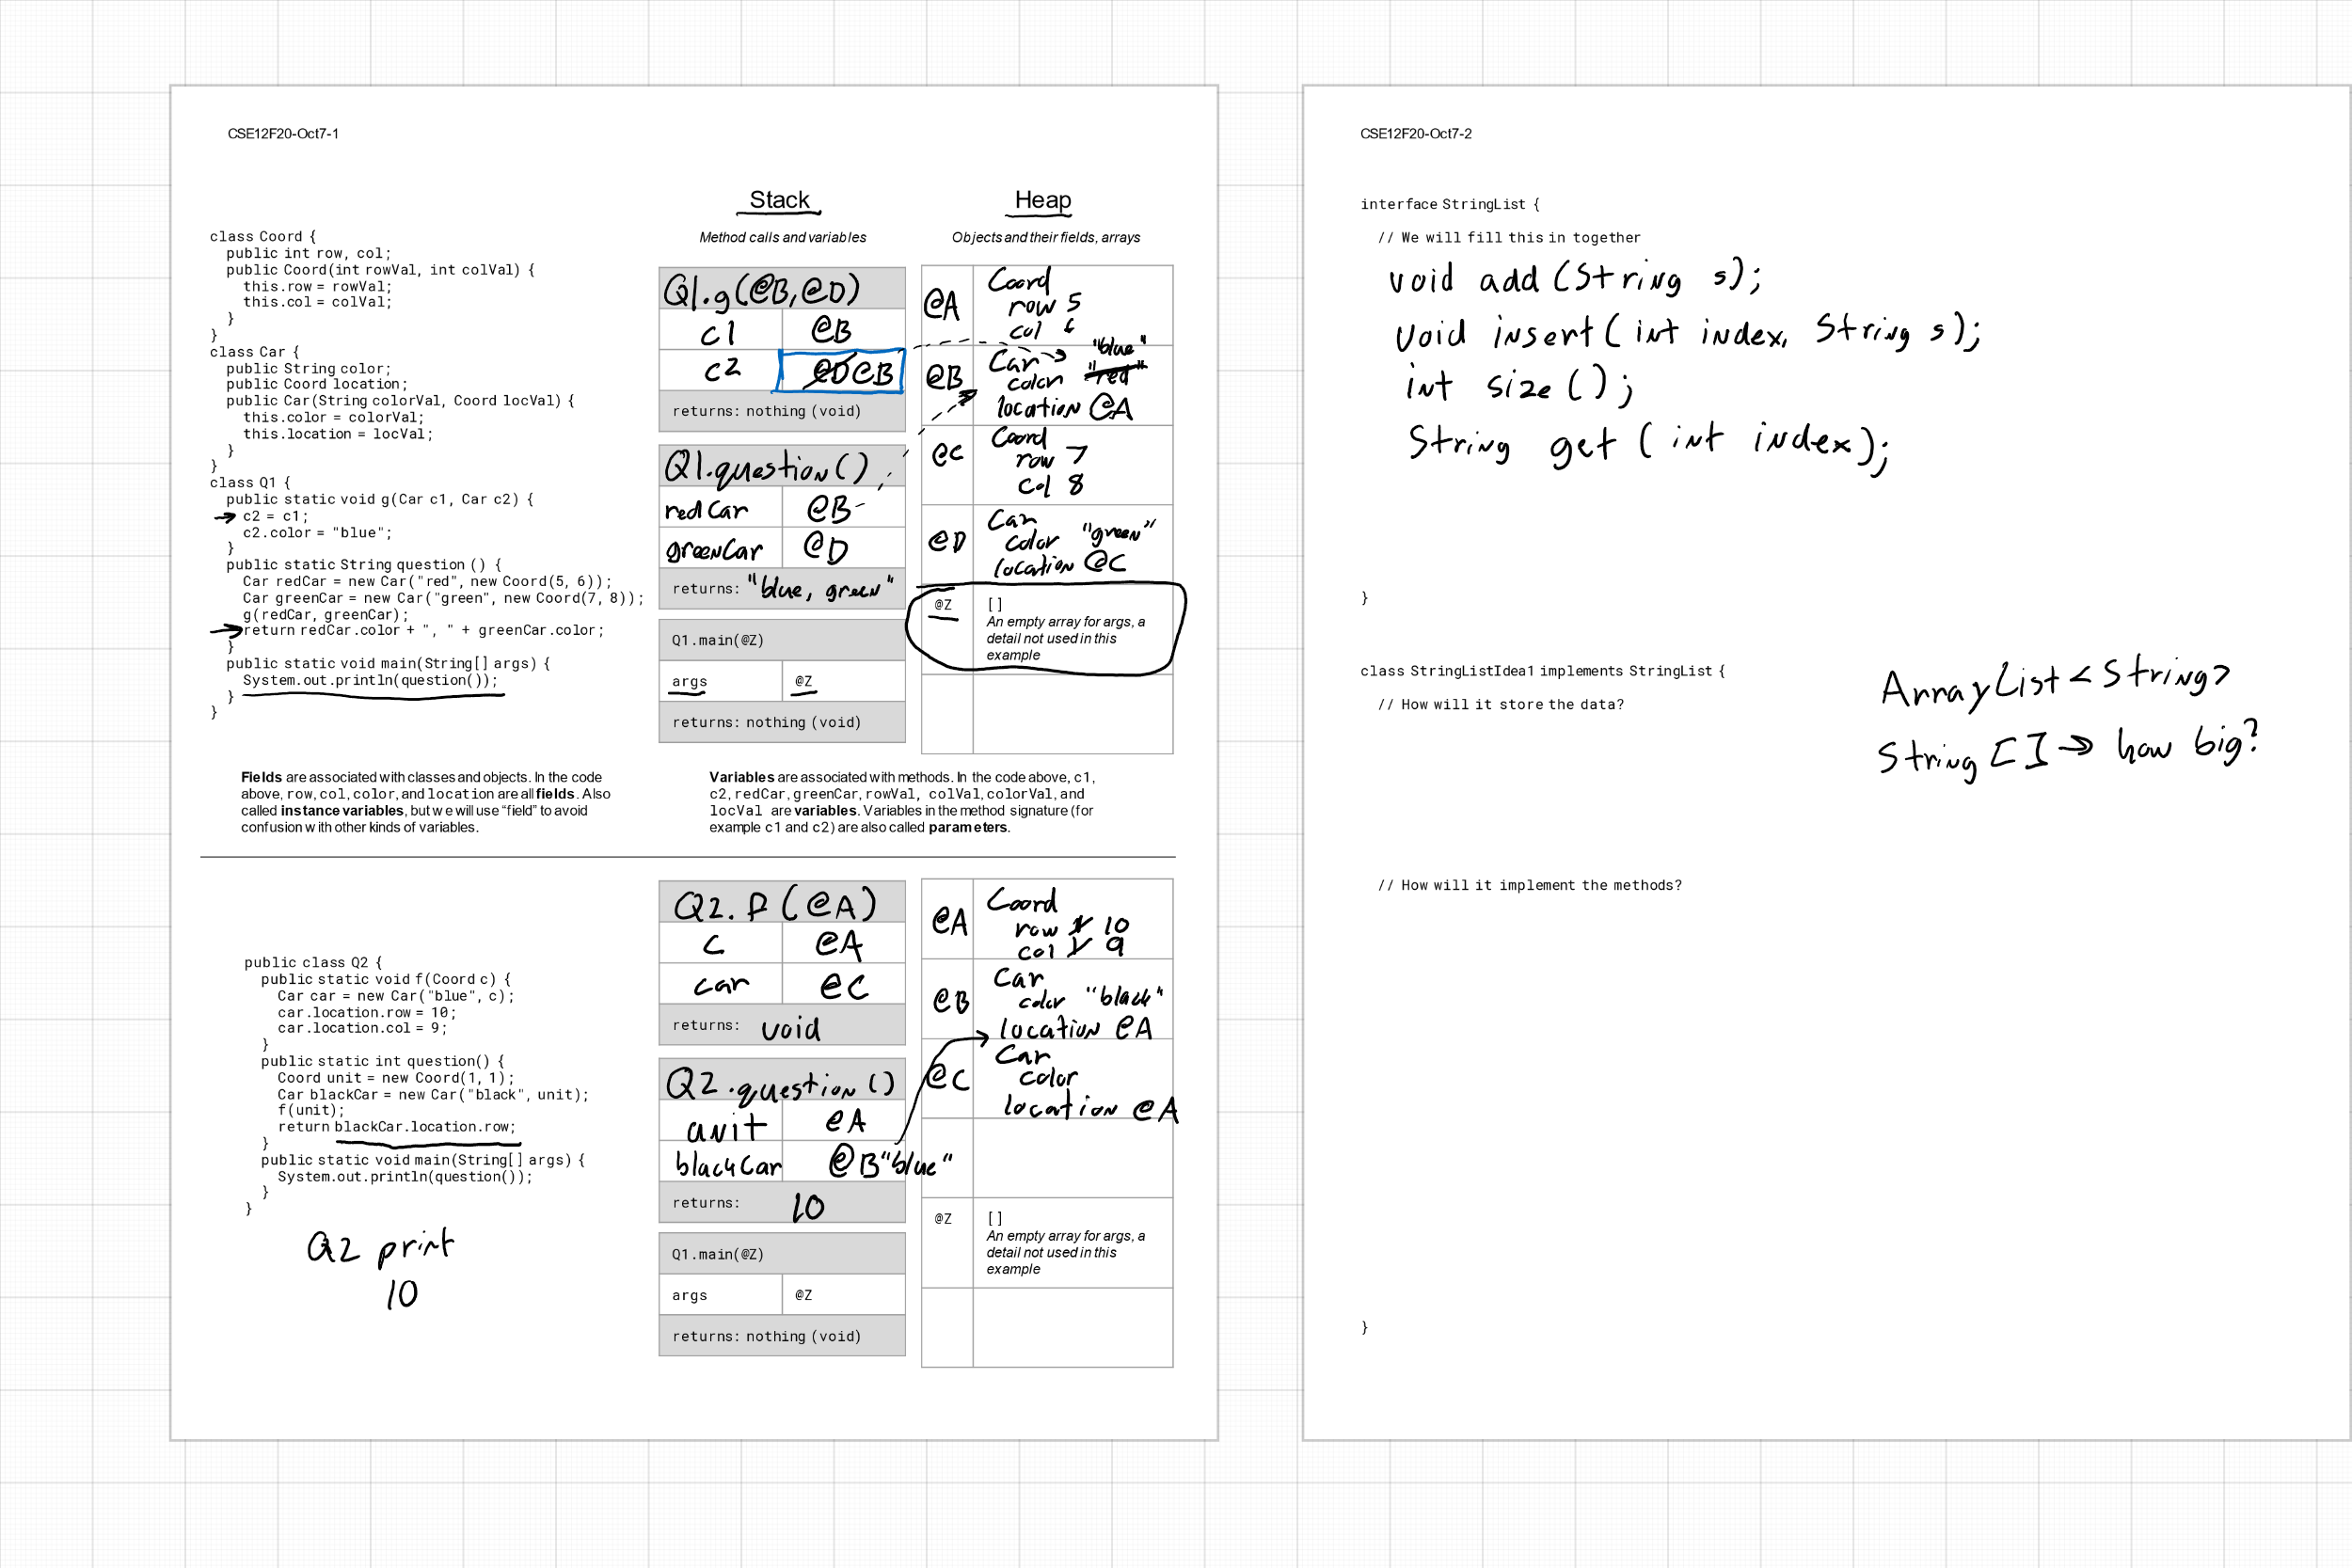 CSE12F20-Oct7-1
Stack
Heap
Method calls and variables
Objects and their fields, arrays
class Coord {
public int row, col;
public Coord(int rowVal, int colVal) {
this.row = rowVal;
this.col = colVal;
}
}
class Car {
public String color;
public Coord location;
public Car(String colorVal, Coord locVal) {
this.color = colorVal;
this.location = locVal;
}
}
class Q1 {
public static void g(Car c1, Car c2) {
c2 = c1;
c2.color = "blue";
}
public static String question () {
Car redCar = new Car("red", new Coord(5, 6));
Car greenCar = new Car("green", new Coord(7, 8));
g(redCar, greenCar);
return redCar.color + ", " + greenCar.color;
}
public static void main(String[] args) {
System.out.println(question());
}
}
Q1.g(@B,@D)
c1 @B
c2 @D @B
returns: nothing (void)
Q1.question()
redCar @B
greenCar @D
returns: "blue, green"
Q1.main(@Z)
args @Z
returns: nothing (void)
@A Coord
row 5
col 6
@B Car "blue"
color "red"
location @A
@C Coord
row 7
col 8
@D Car
color "green"
location @C
@Z []
An empty array for args, a
detail not used in this
example
Fields are associated with classes and objects. In the code
above, row, col, color, and location are all fields. Also
called instance variables, but we will use "field" to avoid
confusion with other kinds of variables.
Variables are associated with methods. In the code above, c1,
c2, redCar, greenCar, rowVal, colVal, colorVal, and
locVal are variables. Variables in the method signature (for
example c1 and c2) are also called parameters.
public class Q2 {
public static void f(Coord c) {
Car car = new Car("blue", c);
car.location.row = 10;
car.location.col = 9;
}
public static int question() {
Coord unit = new Coord(1, 1);
Car blackCar = new Car("black", unit);
f(unit);
return blackCar.location.row;
}
public static void main(String[] args) {
System.out.println(question());
}
}
Q2 print
10
Q2.f(@A)
c @A
car @C
returns: void
Q2.question()
unit @A
blackCar @B "blue"
returns: 10
Q1.main(@Z)
args @Z
returns: nothing (void)
@A Coord
row 1 10
col 1 9
@B Car
color "black"
location @A
@C Car
color
location @A
@Z []
An empty array for args, a
detail not used in this
example
CSE12F20-Oct7-2
interface StringList {
// We will fill this in together
void add (String s);
void insert( int index, String s);
int size ();
String get ( int index);
}
class StringListIdea1 implements StringList {
// How will it store the data?
ArrayList<String>
String [] → how big?
// How will it implement the methods?
}